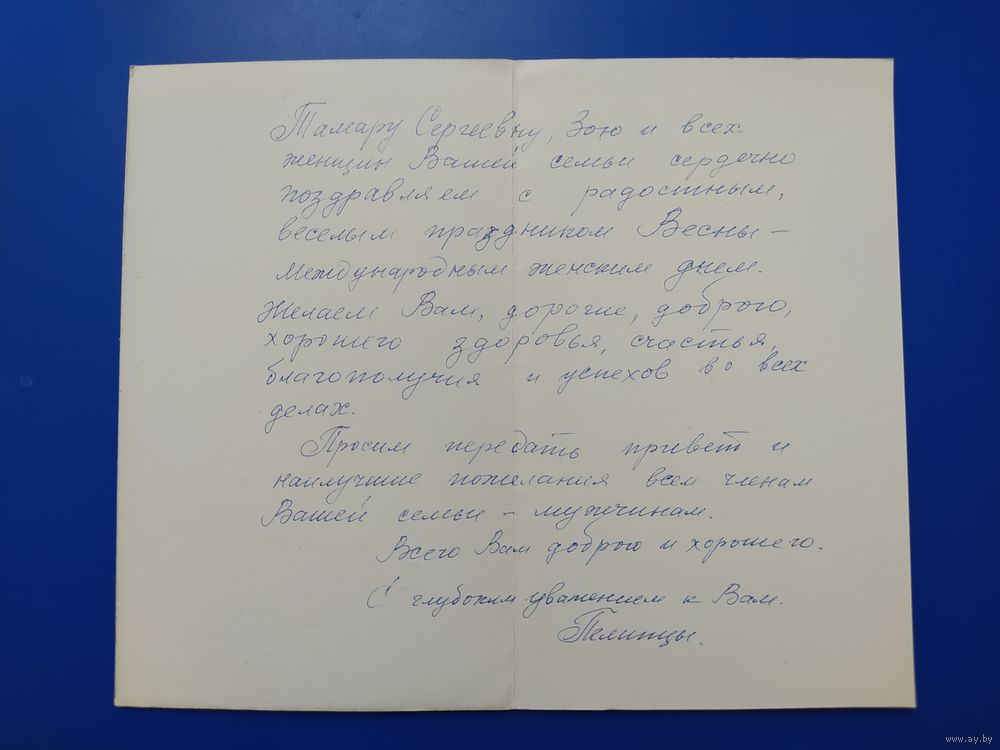 Тамару Сергеевну, Зою и всех
женщин Вашей семьи сердечно
поздравляем с радостным,
веселым праздником Весны –
международным женским днем.
Желаем Вам, дорогие, доброго,
хорошего здоровья, счастья,
благополучия и успехов во всех
делах.
Просим передать привет и
наилучшие пожелания всем членам
Вашей семьи – мужчинам.
Всего Вам доброго и хорошего.
С глубоким уважением к Вам.
www.ay.by